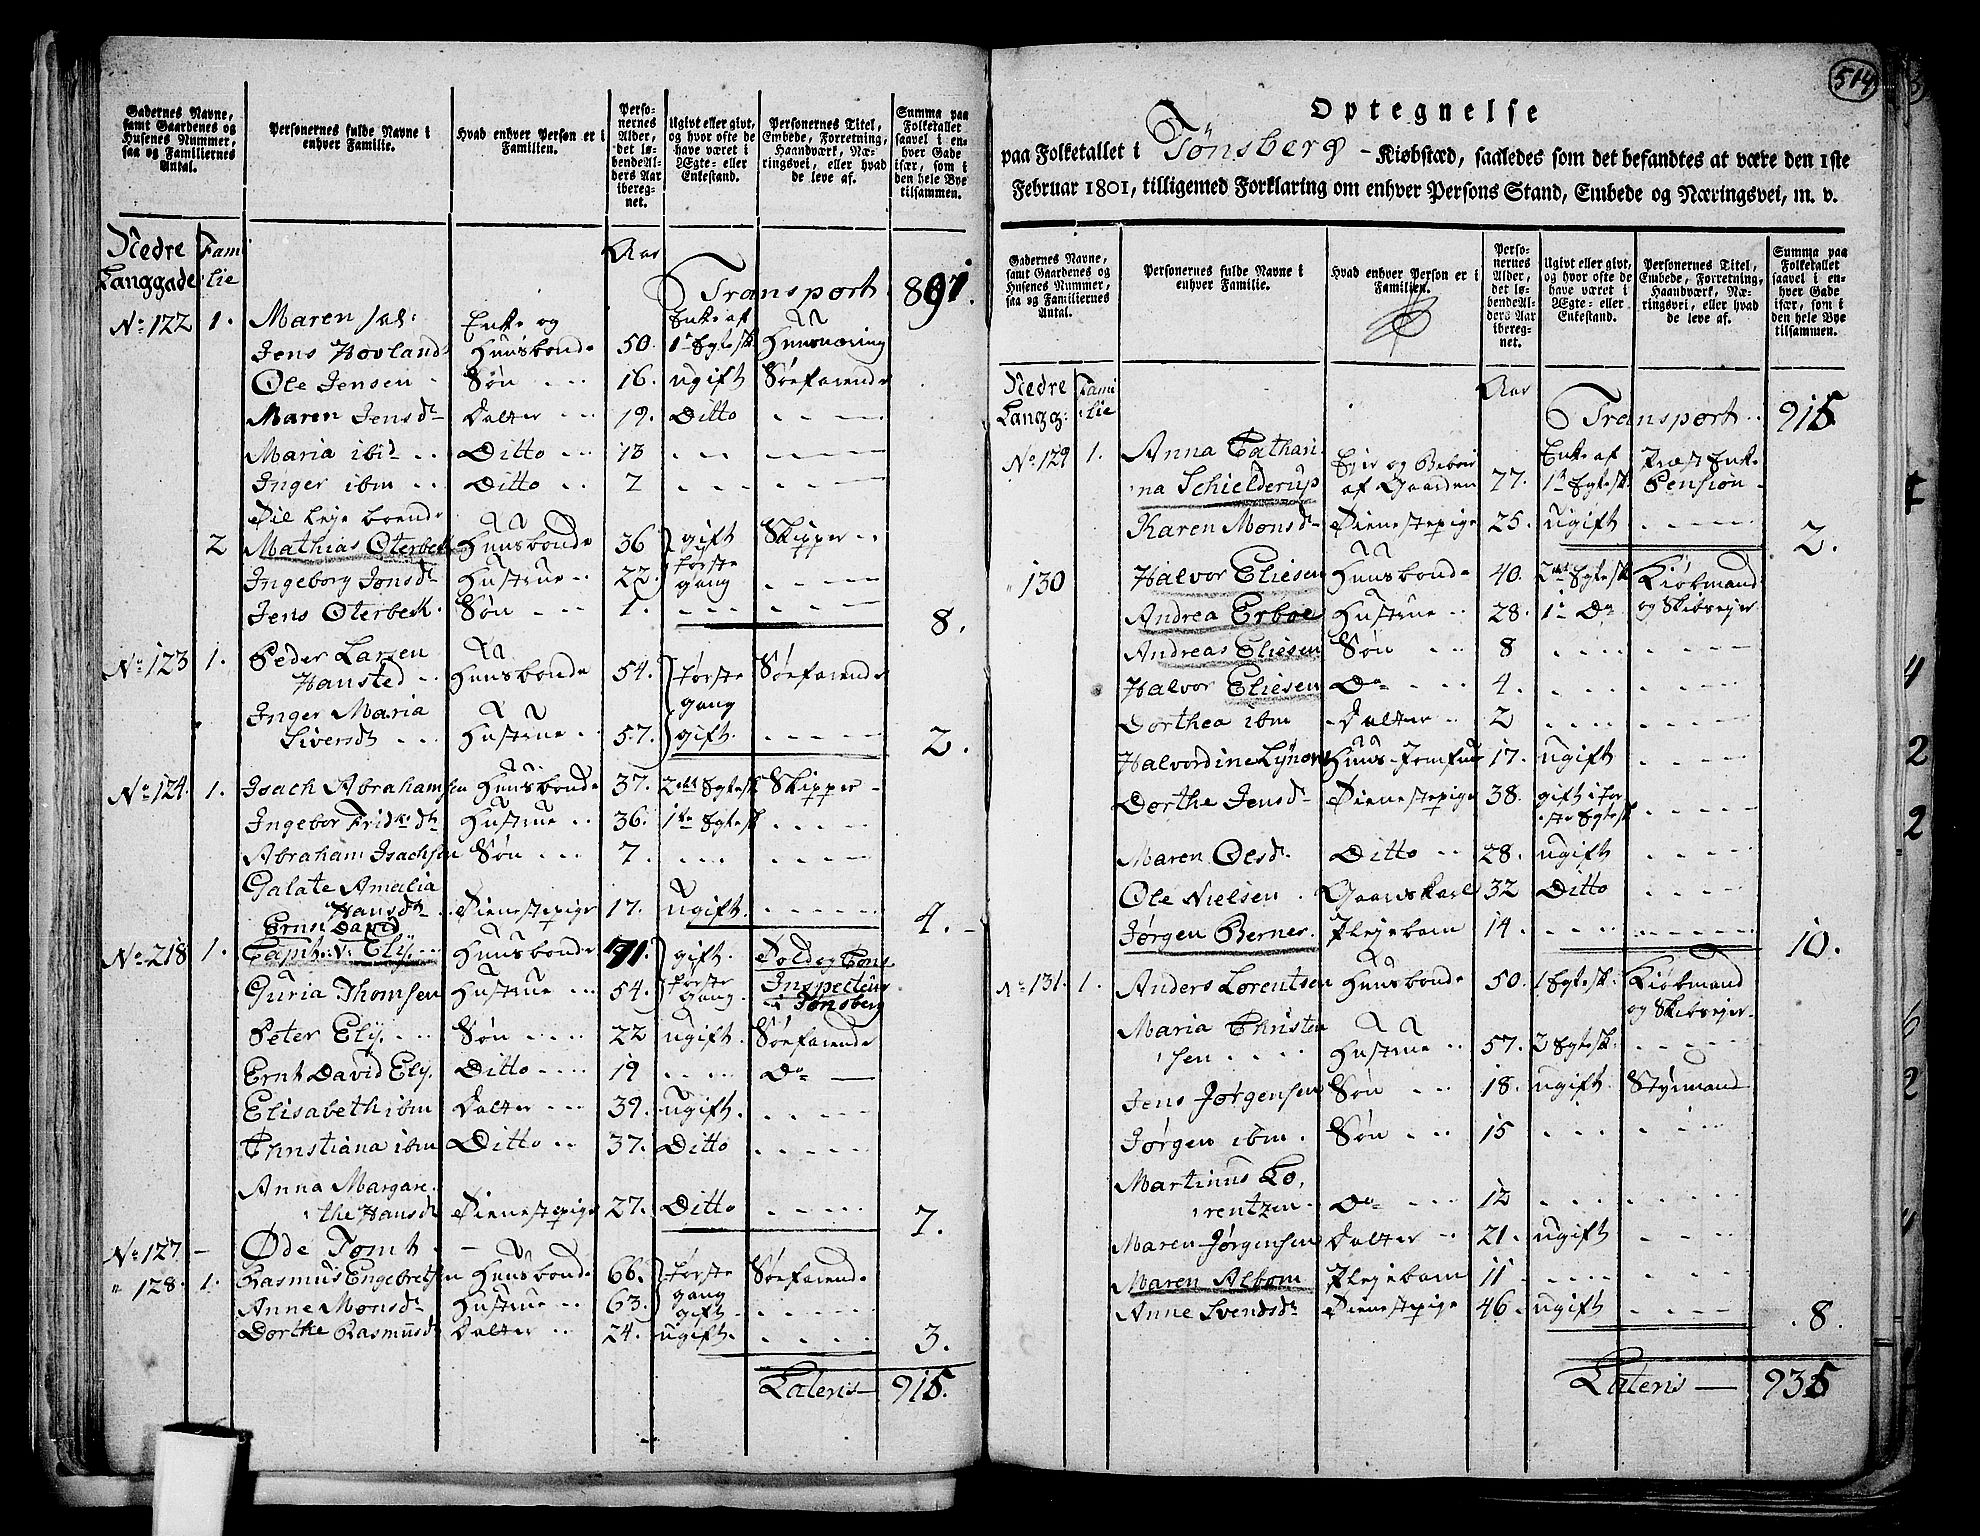 Gadernes Navne, samt Gaardenes og Husenes Nummer, saa og Familiernes Antal.
Personernes fulde Navne i enhver Familie.
Hvad enhver Person er i Familien.
Personernes Alder, det løbende Alders Aar iberegnet.
Ugivt eller givt, og hvor ofte de have været i Ægte- eller Enkestand.
Personernes Titel, Embede, Forretning, Haandværk, Næringsvei, eller hvad de leve af.
Summa paa Folketallet saavel i enhver Gade især, som i den hele Bye tilsammen.
Nedre Langgade Familie Aar
Transport 891.
No 122 1. Maren sal: Enke og Enke af
Jens Hovlands Huusbonde 50. 1te Egtesk. Huusnæring
Ole Jensen Søn 16. ugift Søefarende
Maren Jensdr Datter 19. Ditto
Maria ibid Ditto 13
Inger ibm Ditto 7
Til Leje boende
2 Mathias Oterbek Huusbonde 36 gift Skipper
Ingeborg Jonsdr Hustrue 22. første gang
Jens Oterbeck. Søn 1.
8.
No 123 1. Peder Larsen
Hansted Huusbonde 54. første Søefarende
Inger Maria gang
Siversdr Hustrue 57. gift
2.
No 124. 1. Isach Abrahamsen Huusbonde 37. 2det Egtesk Skipper
Ingebor Fridrdr Hustrue 36. 1te Egtesk
Abraham Isachsen Søn 7.
Galate Amalia
Hansdr Tienestepige 17. ugift.
4.
Ernst David
No 218 1. Capt. v: Elÿ. Huusbonde 71. gift. Told og Cons.
Guria Thomsen Hustrue 54. første Gang. Inspecteur i Tønsberg
Peter Elÿ. Søn 22 ugift. Søefarende
Ernt David Elÿ. Ditto 19 Do
Elisabeth ibm Datter 39. ugift.
Christiana ibm Ditto 37. Ditto
Anna Margare
the Hansdr Tienestepige 27. Ditto
7.
No 127 Øde Tomt
" 128. 1. Rasmus Engebretsen Huusbonde 66. første Søefarende
Anne Monsdr Hustrue 63. gang gift
Dorthe Rasmusdr Datter 24. ugift.
3.
Lateris 915.
514
Optegnelse
paa Folketallet i Tønsberg Kiøbstæd, saaledes som det befandtes at være den 1ste
Februar 1801, tilligemed Forklaring om enhver Persons Stand, Embede og Næringsvei, m. v.
Gadernes Navne, samt Gaardenes og Husenes Nummer, saa og Familiernes Antal.
Personernes fulde Navne i enhver Familie.
Hvad enhver Person er i Familien.
Personernes Alder, det løbende Alders Aar iberegnet.
Ugivt eller givt, og hvor ofte de have været i Ægte- eller Enkestand.
Personernes Titel, Embede, Forretning, Haandværk, Næringsvei, eller hvad de leve af.
Summa paa Folketallet saavel i enhver Gade især, som i den hele Bye tilsammen.
Nedre Langg: Familie Aar
Transport 915
No 129 1. Anna Cathari Ejer og Beboer Enke af Præst Enke
na Schielderup af Gaarden 77. 1te Egtesk. Pension
Karen Monsdr Tienestepige 25. ugift
2.
" 130 Halvor Eliesen Huusbonde 40. 2det Egtesk Kiøbmand
Andrea Erboe Hustrue 28. 1te Do og Skibrejer
Andreas Eliesen Søn 8
Halvor Eliesen Do 4.
Dorthea ibm Datter 2
Halvordine Huus-Jomfrue 17. ugift
Dorthe Jensdr Tienestepige 38. gift i første Egtesk
Maren Olsdr. Ditto 28. ugift
Ole Nielsen Gaardskarl 32 Ditto
Jørgen Bernes. Plejebarn 14.
10.
No 131. 1. Anders Lorentsen Huusbonde 50. 1 Egtesk. Kiøbmand
Maria Christen og Skibrejer
sen Hustrue 57. 2 Egtesk.
Jens Jørgensen Søn 18. ugift Styrmand
Jørgen ibm. Søn 15
Martinus Lo
rentzen Do 12
Maren Jørgensen Datter 21. ugift
Maren Albom Plejebarn 11
Anne Svendsdr Tienestepige 46. ugift
8.
Lateris 935